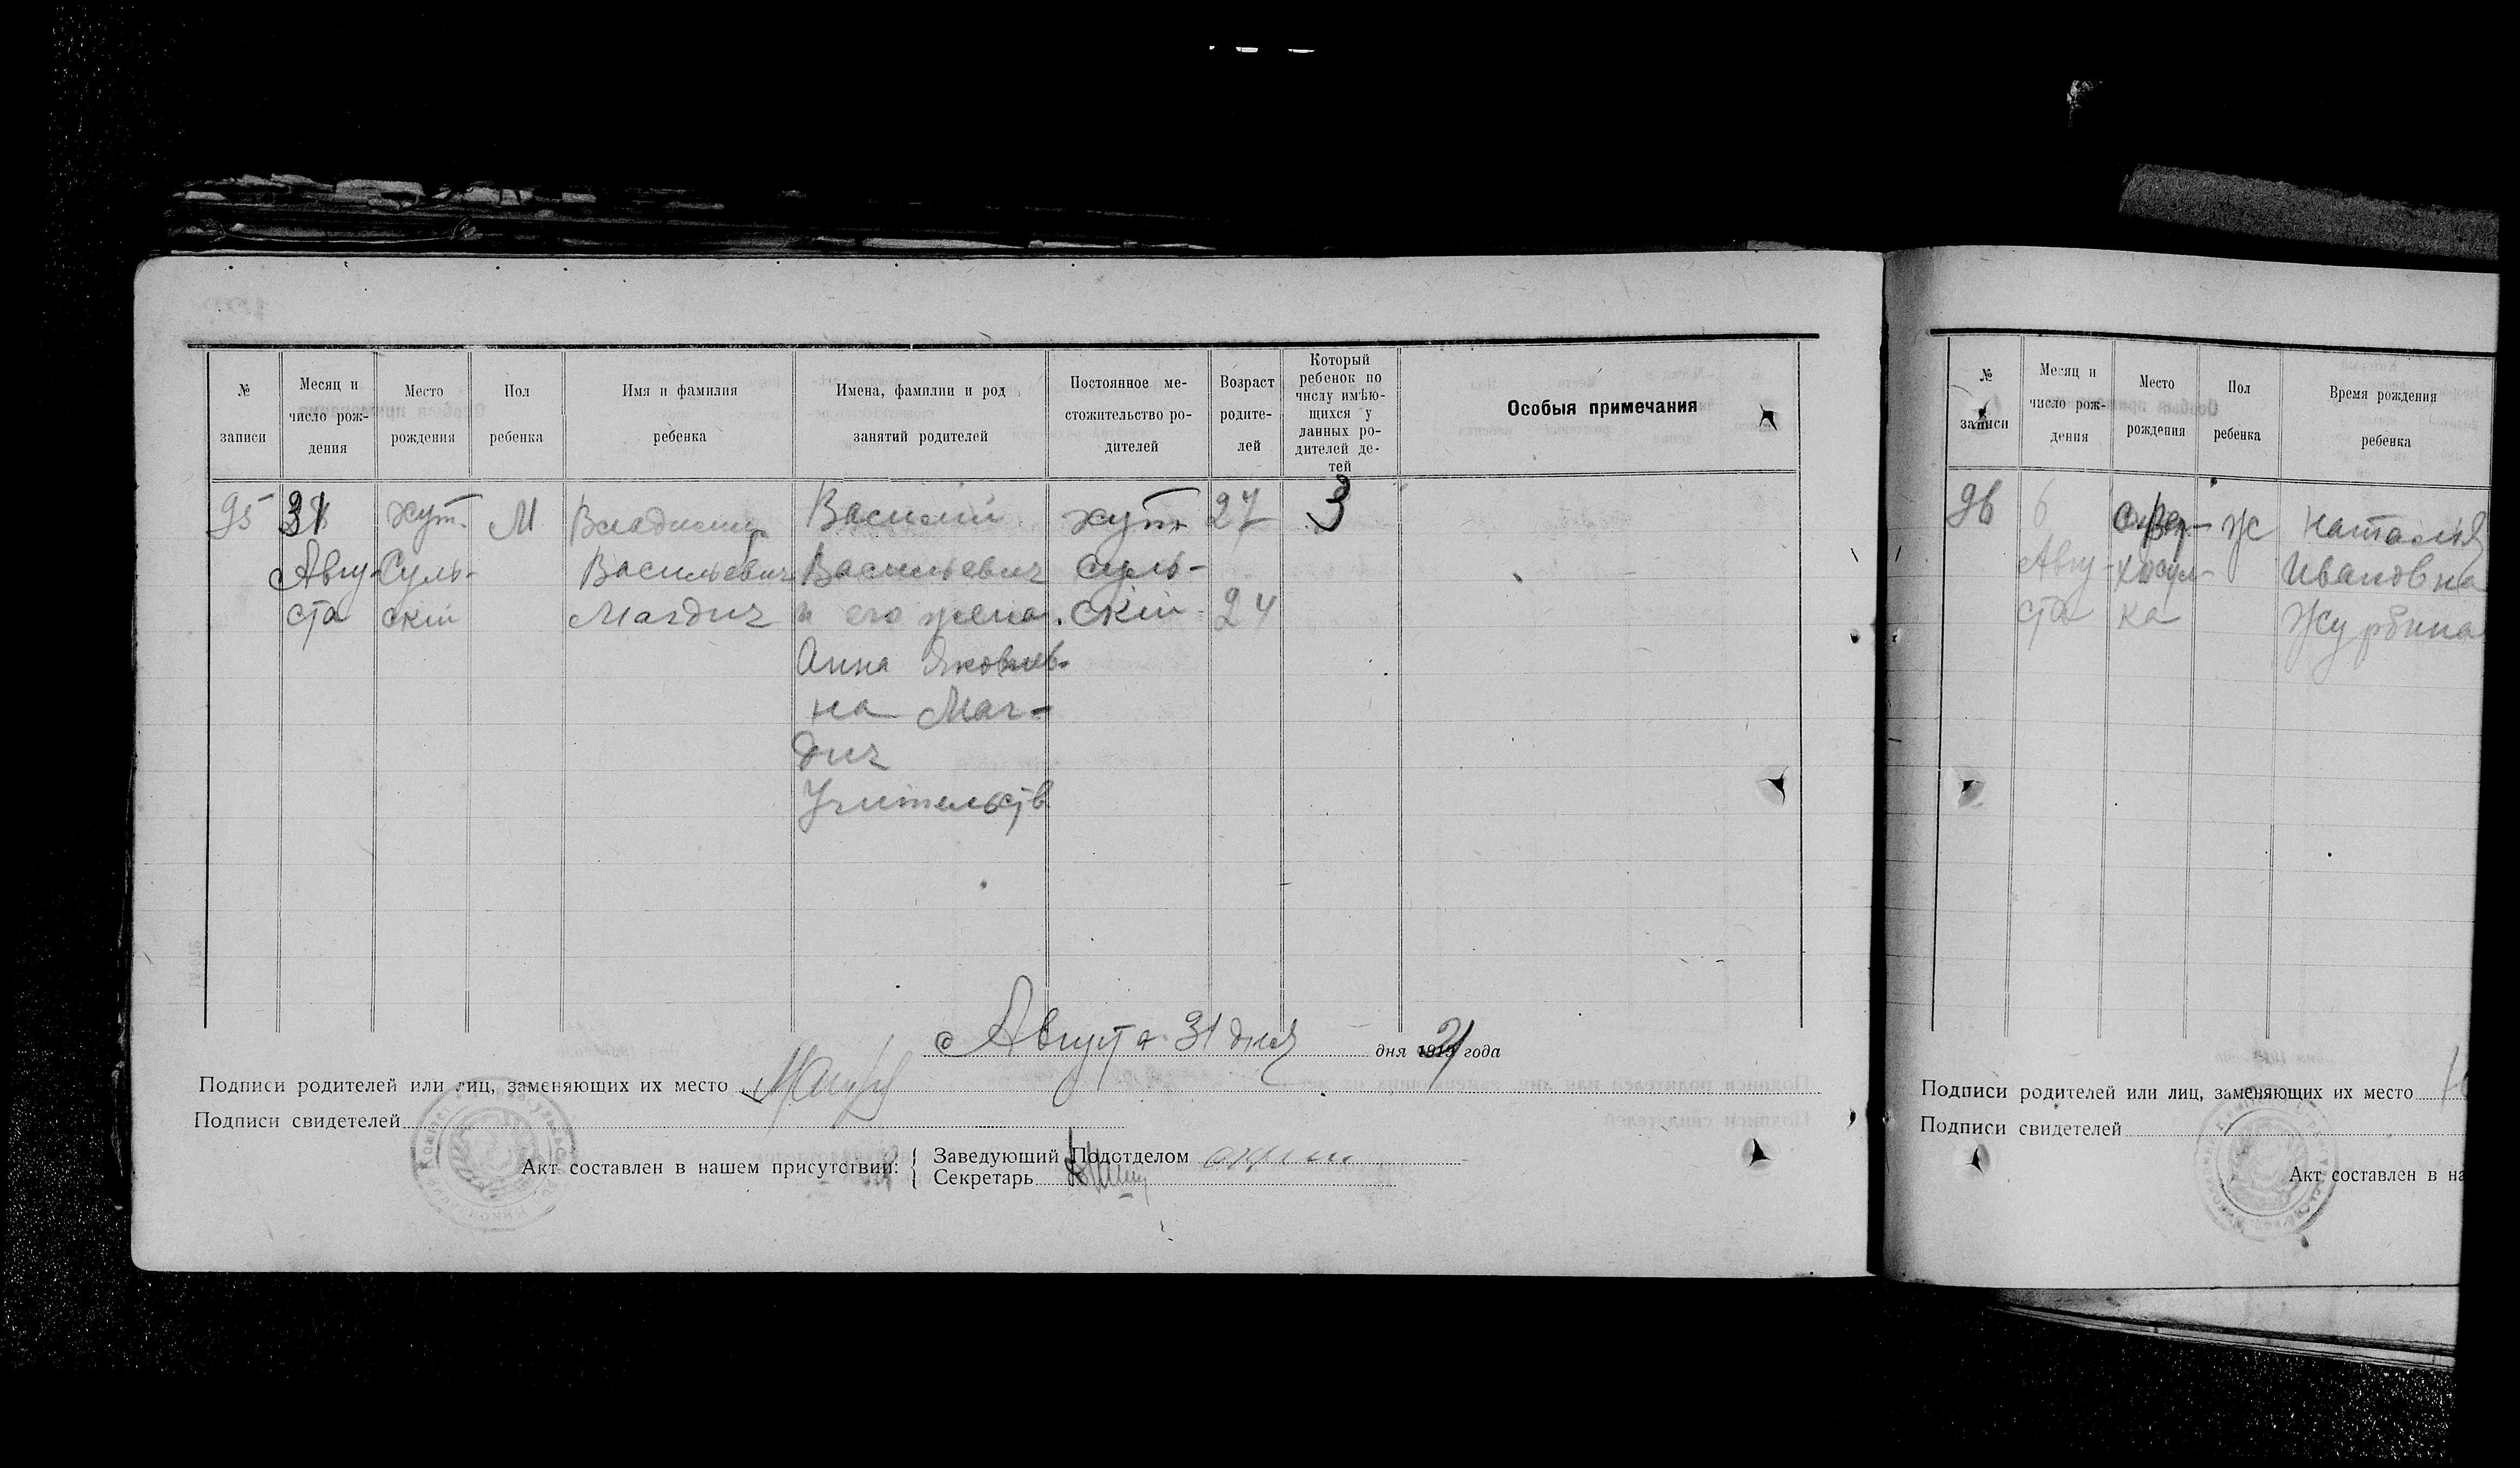 № записи
Месяц и число рождения
Место рождения
Пол ребенка
Имя и фамилия ребенка
Имена, фамилии и род занятий родителей
Постоянное местожительство родителей
Возраст родителей
Который ребенок по числу имѣющихся у данных родителей детей
Особыя примечания
95 31 хут. М Владимир Василий хут. 27 3
Авгу- Суль- Васильевич Васильевич суль-
ста скій Магдич и его жена скій 24
Анна Яковлев-
на Маг-
дич
Учительств
Августа 31 дня дня 1919 21 года
Подписи родителей или лиц, заменяющих их место
Подписи свидетелей
Акт составлен в нашем присутствии:
Заведующий Подотделом
Секретарь
№ записи
Месяц и число рождения
Место рождения
Пол ребенка
Время рождения ребенка
96 6 с. Вер- Ж Наталья
Авгу- хосул- Ивановна
ста ка Журбина
Подписи родителей или лиц, заменяющих их место
Подписи свидетелей
Акт составлен в на